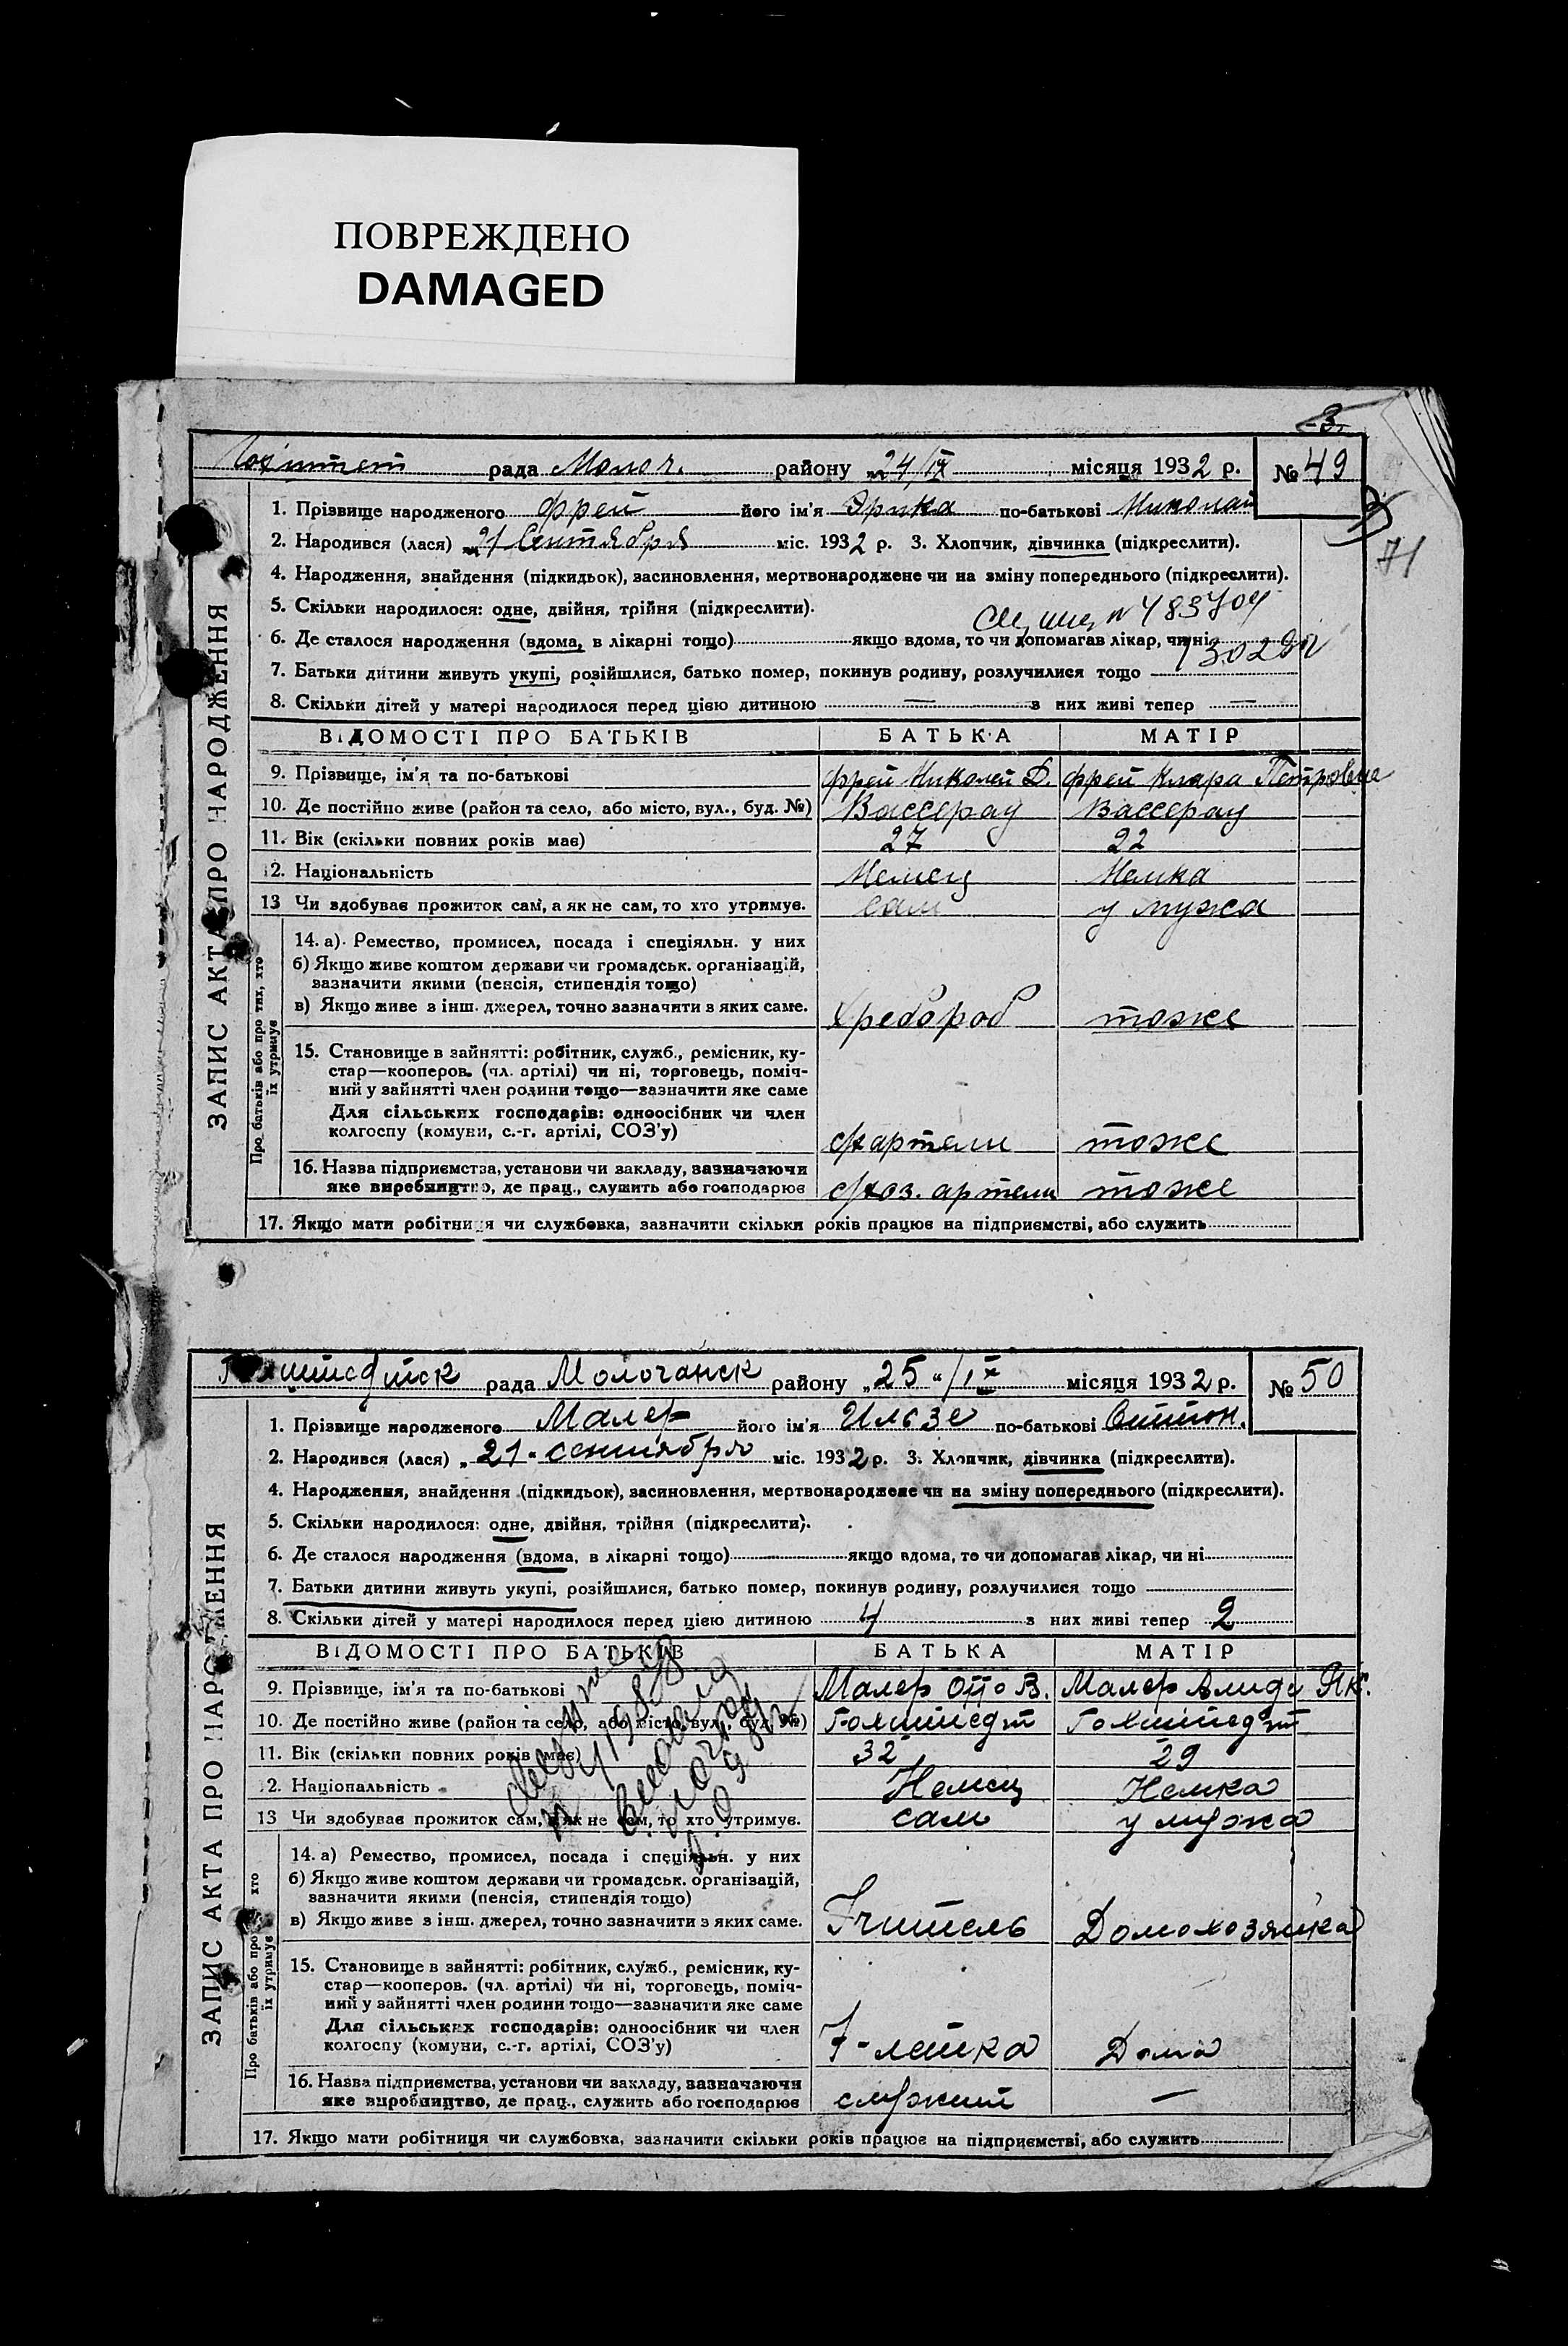 ПОВРЕЖДЕНО
DAMAGED
3.
рада Молоч. району „24/IX місяця 1932 р. № 49
71
1. Прізвище народженого Фрей його ім'я Эрика по-батькові Николай
2. Народився (лася) „21 Сентября міс. 1932 р. 3. Хлопчик, дівчинка (підкреслити).
4. Народження, знайдення (підкидьок), засиновлення, мертвонароджене чи на зміну попереднього (підкреслити).
5. Скільки народилося: одне, двійня, трійня (підкреслити).
6. Де сталося народження (вдома, в лікарні тощо) якщо вдома, то чи допомагав лікар, чи ні
7. Батьки дитини живуть укупі, розійшлися, батько помер, покинув родину, розлучилися тощо
8. Скільки дітей у матері народилося перед цією дитиною — з них живі тепер —
ЗАПИС АКТА ПРО НАРОДЖЕННЯ
ВІДОМОСТІ ПРО БАТЬКІВ БАТЬКА МАТІР
9. Прізвище, ім'я та по-батькові Фрей Николай Д. Фрей Клара Петровна
10. Де постійно живе (район та село, або місто, вул., буд. №) Вассерау Вассерау
11. Вік (скільки повних років має) 27 22
12. Національність Немец Немка
13 Чи здобуває прожиток сам, а як не сам, то хто утримує. сам у мужа
Про батьків або про тих, хто їх утримує
14. а) Ремество, промисел, посада і спеціяльн. у них
б) Якщо живе коштом держави чи громадськ. організацій,
зазначити якими (пенсія, стипендія тощо)
в) Якщо живе з інш. джерел, точно зазначити з яких саме. тоже
15. Становище в зайнятті: робітник, служб., ремісник, ку-
стар—кооперов. (чл. артілі) чи ні, торговець, поміч-
ний у зайнятті член родини тощо—зазначити яке саме
Для сільських господарів: одноосібник чи член
колгоспу (комуни, с.-г. артілі, СОЗ'у) артели тоже
16. Назва підприємства, установи чи закладу, зазначаючи
яке виробництво, де прац., служить або господарює артели тоже
17. Якщо мати робітниця чи службовка, зазначити скільки років працює на підприємстві, або служить
рада Молочанск району „25“/IX місяця 1932 р. № 50
1. Прізвище народженого Малер його ім'я Ильзе по-батькові Оттон.
2. Народився (лася) „21 сентября міс. 1932 р. 3. Хлопчик, дівчинка (підкреслити).
4. Народження, знайдення (підкидьок), засиновлення, мертвонароджене чи на зміну попереднього (підкреслити).
5. Скільки народилося: одне, двійня, трійня (підкреслити).
6. Де сталося народження (вдома, в лікарні тощо) якщо вдома, то чи допомагав лікар, чи ні
7. Батьки дитини живуть укупі, розійшлися, батько помер, покинув родину, розлучилися тощо
8. Скільки дітей у матері народилося перед цією дитиною 4 з них живі тепер 2
ЗАПИС АКТА ПРО НАРОДЖЕННЯ
ВІДОМОСТІ ПРО БАТЬКІВ БАТЬКА МАТІР
9. Прізвище, ім'я та по-батькові Малер Отто В. Малер Як.
10. Де постійно живе (район та село, або місто, вул., буд. №) Гохштедт Гохштедт
11. Вік (скільки повних років має) 32 29
12. Національність Немец Немка
13 Чи здобуває прожиток сам, а як не сам, то хто утримує. сам у мужа
Про батьків або про тих, хто їх утримує
14. а) Ремество, промисел, посада і спеціяльн. у них
б) Якщо живе коштом держави чи громадськ. організацій,
зазначити якими (пенсія, стипендія тощо)
в) Якщо живе з інш. джерел, точно зазначити з яких саме. Учитель Домохозяйка
15. Становище в зайнятті: робітник, служб., ремісник, ку-
стар—кооперов. (чл. артілі) чи ні, торговець, поміч-
ний у зайнятті член родини тощо—зазначити яке саме
Для сільських господарів: одноосібник чи член
колгоспу (комуни, с.-г. артілі, СОЗ'у) 7-летка Дома
16. Назва підприємства, установи чи закладу, зазначаючи
яке виробництво, де прац., служить або господарює служит —
17. Якщо мати робітниця чи службовка, зазначити скільки років працює на підприємстві, або служить